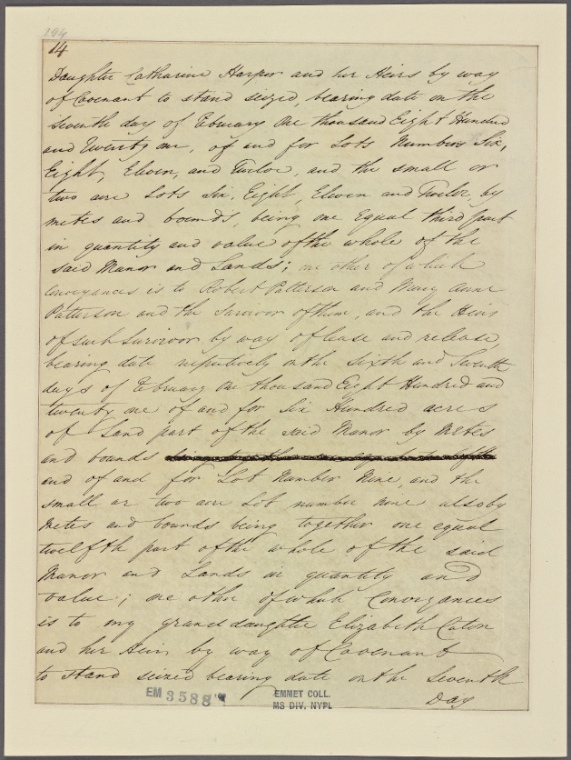 194
14
Daughter Catharine Harper and her Heirs by way
of Covenant to stand seized, bearing date on the
Seventh day of Ebruary One thousand Eight Hundred
and Twenty one, of and for Lots Numbers Six,
Eight, Eleven, and Twelve, and the small or
two acre Lots Six, Eight, Eleven and Twelve, by
metes and bounds, being one Equal third part
in quantity and value of the whole of the
said Manor and Lands; one other of which
Conveyances is to Robert Patterson and Mary Anne
Patterson and the Survivor of them, and the Heirs
of such Survivor by way of lease and release,
bearing date respectively on the Sixth and Seventh
days of Ebruary One thousand Eight Hundred and
twenty one of and for Six Hundred acres
of Land part of the said Manor by Metes
and bounds
and of and for Lot Number Nine, and the
small or two acre Lot number nine also by
Metes and bounds being together one equal
twelfth part of the whole of the said
Manor and Lands in quantity and
value; one other of which Conveyances
is to my grand daughter Elizabeth Caton
and her Heirs by way of Covenant
to stand seized bearing date on the Seventh
Day
EM 3588
EMMET COLL.
MS DIV. NYPL